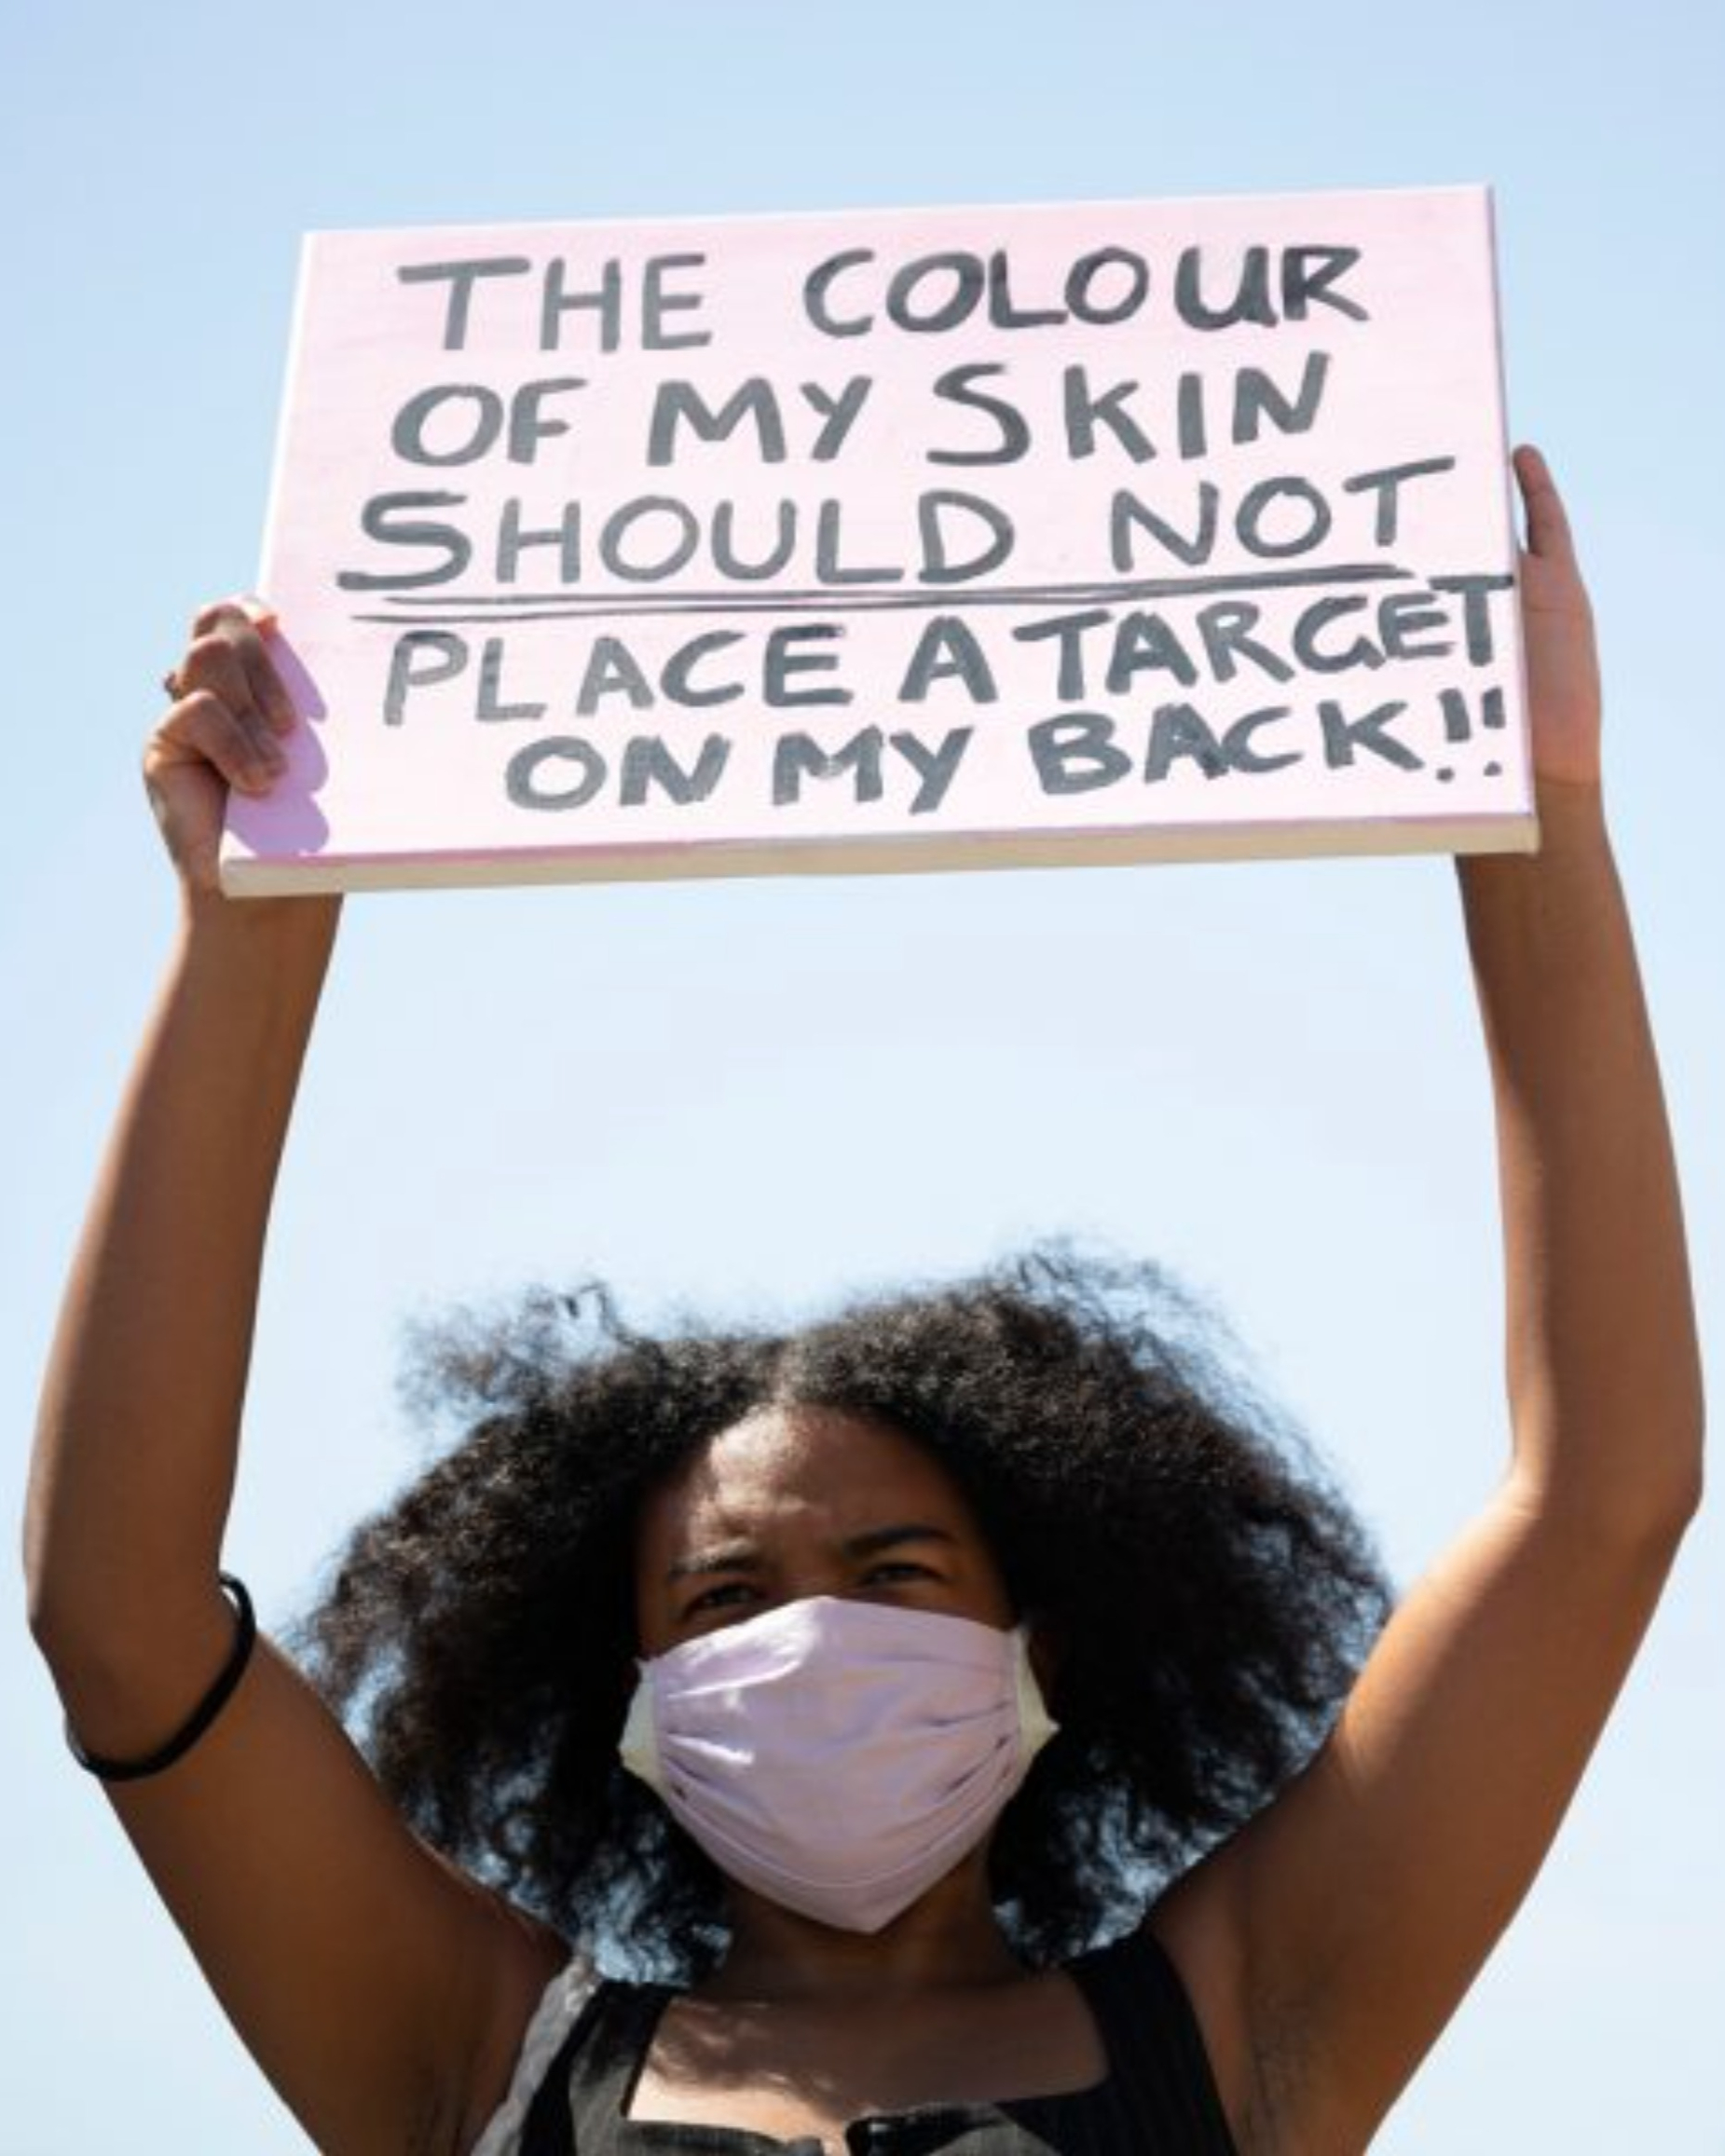 THE COLOUR
OF MY SKIN
SHOULD NOT
PLACE A TARGET
ON MY BACK!!